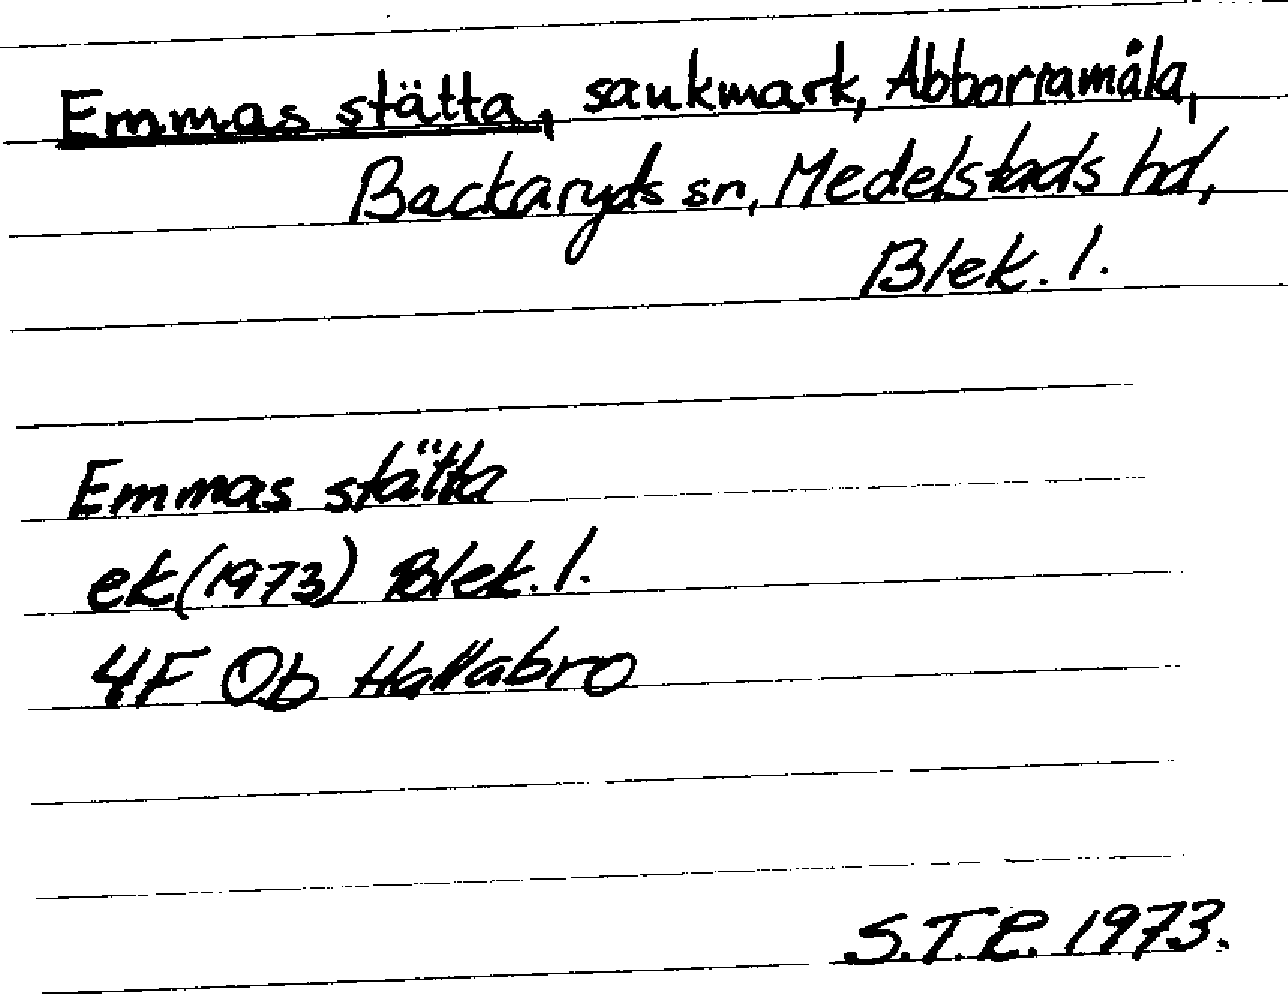 Emmas stätta, saukmark, Abborramåla,
Backaryds sn, Medelstads hd,
Blek. l.
Emmas stätta
ek (1973) Blek. l.
4F Ob Hallabro
S.T.R. 1973.